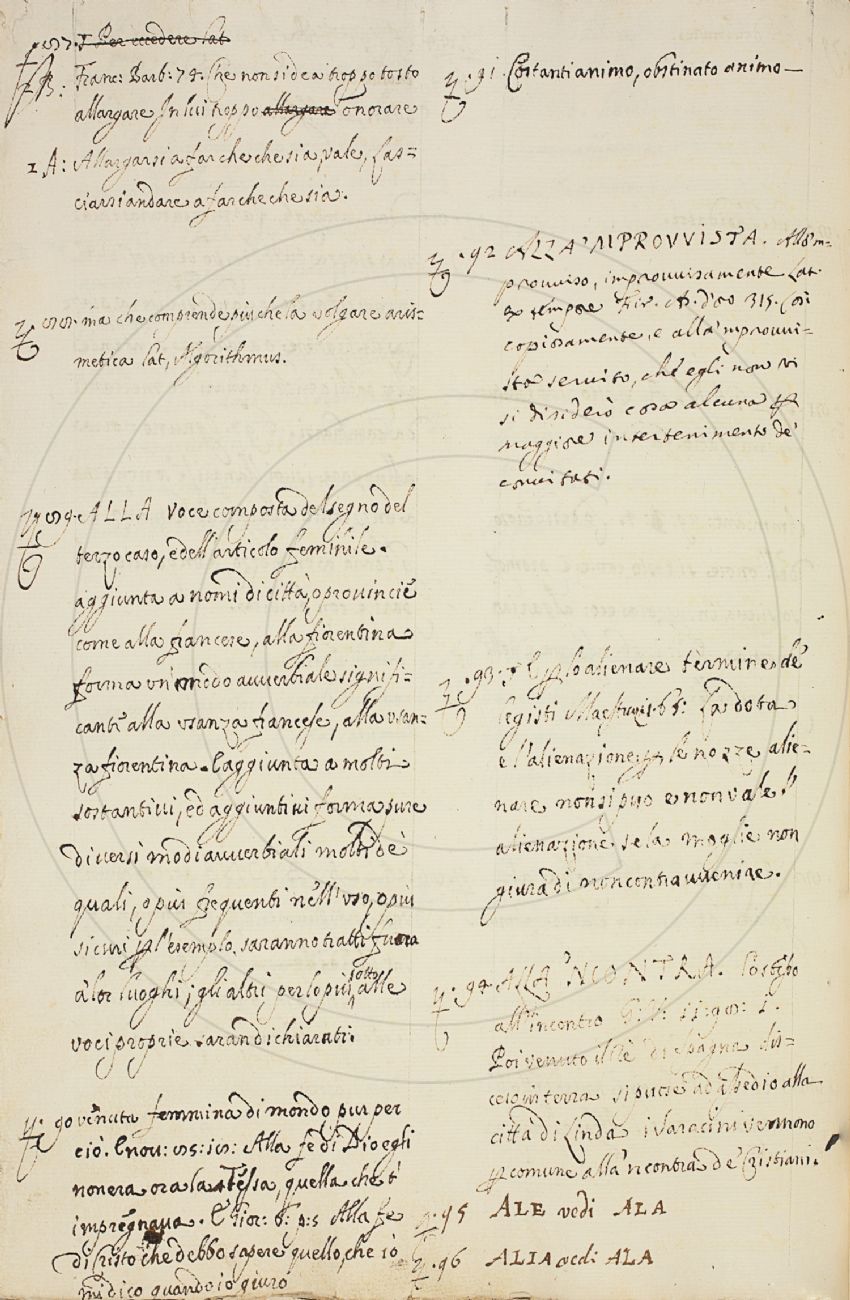 Per eccedere lat
B: Franc: Barb: 74. Che non si dea troppo tosto
allargare In lui troppo allargare onorare
A: Allargarsi a far che che sia, vale, las=
ciarsi andare a far che che sia.
ma che comprende più che la volgare aris=
metica lat, Algorithmus.
ALLA voce composta del segno del
terzo caso, e dell'articolo feminile.
aggiunta a nomi di città, o provincie
come alla francese, alla fiorentina
forma un modo avverbiale signifi=
cante alla usanza francese, alla usan=
za fiorentina. Laggiunta a molti
sostantivi, ed aggiuntivi forma pure
diversi modi avverbiali molti de'
quali, o più frequenti nell'uso, o più
sicuri l'esemplo, saranno tratti fuora
a lor luoghi; gli altri per lo più sotto alle
voci proprie saran dichiarati.
90 venuta femmina di mondo pur per
ciò. E nov: Alla fe di Dio egli
non era ora la stessa, quella che t'
impregnava. E Gior: 8: p: 5 Alla fe
di Cristo che debbo sapere quello, che io
mi dico quando io giuro
91. Costantianimo, obstinato animo—
92 ALLA 'MPROVVISTA. All'im=
provviso, improvvisamente Lat.
ex tempore 315. Così
copiosamente, e alla 'mprovvi=
sta servito, che egli non vi
si disiderò cosa alcuna
maggiore intertenimento de'
convitati.
93. lo alienare termine de'
legisti Maestruzz. La dota
e l'alienazione, le nozze alie=
nare non si può e non vale l'
alienazione se la moglie non
giura di non contravvenire.
94 ALLA 'NCONTRA. Lo stesso
all'incontro G: V:
Poi venuto il Re di Spagna dis=
ceso in terra si puose ad assedio alla
città di Linda i Saracini vennono
comune alla 'ncontra de' Cristiani.
95 ALE vedi ALA
96 ALIA vedi ALA